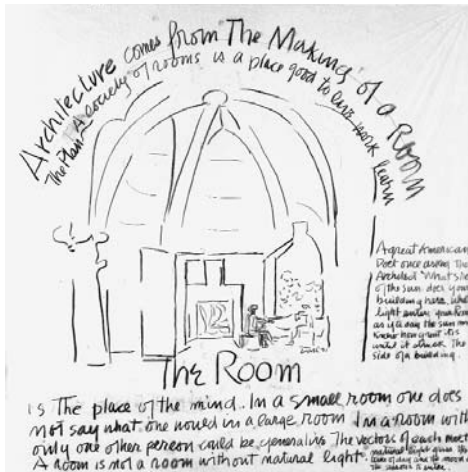 Architecture comes from The Making of a Room
The Plan A society of rooms is a place good to live work learn
A great American
Poet once asked The
Architect "What slice
of the sun does your
building have. What
light enters your Room
as if to say the sun never
knew how great it is
until it struck The
side of a building.
The Room
is The place of the mind. In a small room one does
not say what one would in a large room In a room with
only one other person could be generative The vectors of each meet
A room is not a room without natural light
natural light gives the
time of day and the mood of
the seasons to enter